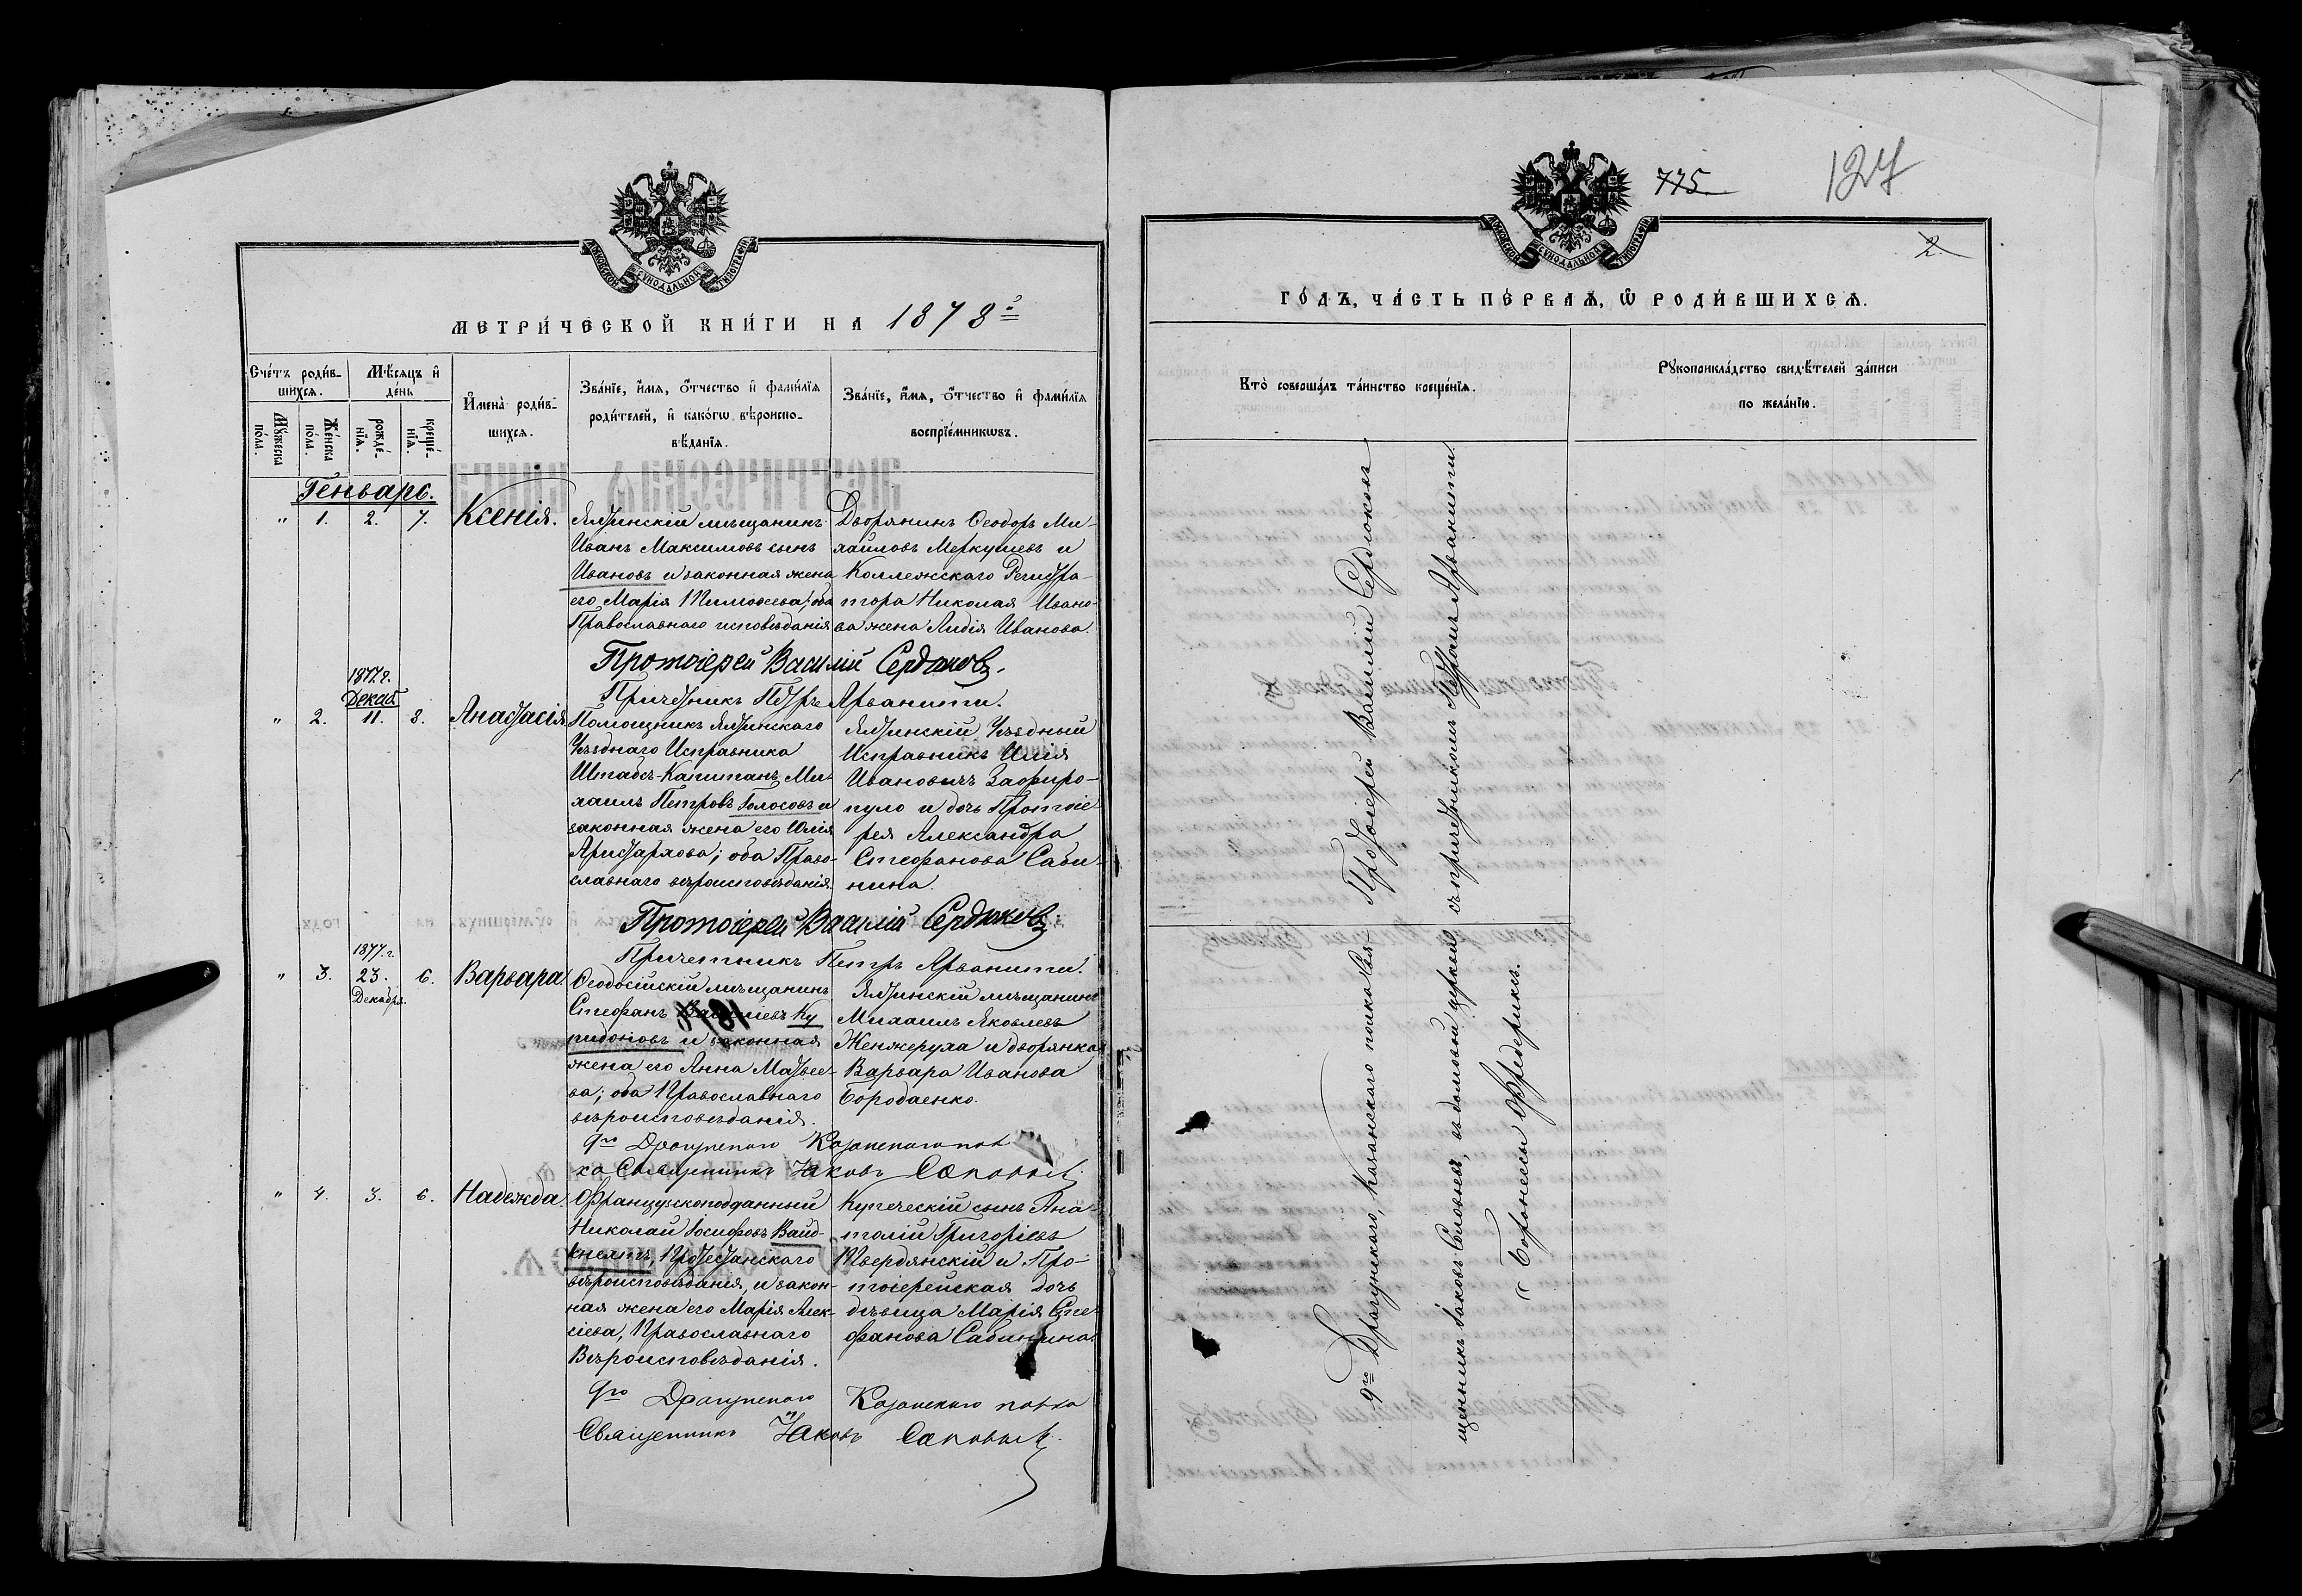 МОСКОВСКОЙ СѴНОДАЛЬНОЙ ТИПОГРАФІИ
МЕТРИ́ЧЕСКОЙ КНИ́ГИ НА 1878 г.
Сче́тъ роди́в-
шихся.
Му́жеска
по́ла.
Же́нска
по́ла.
Мѣ́сяцъ и҆
де́нь
рожде́-
нїѧ.
креще́-
нїѧ.
И҆мена̀ роди́в-
шихсѧ.
Зва́нїе, и҆́мѧ, ѻ҆́тчество и҆ фами́лїѧ
роди́телей, и҆ како́гѡ вѣроиспо-
вѣ́данїѧ.
Зва́нїе, и҆́мѧ, ѻ҆́тчество и҆ фами́лїѧ
воспрїе́мникѡвъ.
Генварь.
" 1. 2. 7. Ксенія.
Ялтинскій мѣщанинъ
Иванъ Максимовъ сынъ
Ивановъ и законная жена
его Марія Тимофеева; оба
Православнаго исповѣданія
Дворянинъ Ѳеодоръ Ми-
хайловъ Меркушевъ и
Коллежскаго Регистра-
тора Николая Ивано-
ва жена Лидія Иванова.
Протоіерей Василій Сердюковъ.
Причетникъ Петръ Арванити.
1877 г.
Декаб.
" 2. 11. 8. Анастасія
Помощникъ Ялтинскаго
Уѣзднаго Исправника
Штабсъ-Капитанъ Ми-
хаилъ Петровъ Голосовъ и
законная жена его Юлія
Аристархова; оба Право-
славнаго вѣроисповѣданія.
Ялтинскій Уѣздный
Исправникъ Илія
Ивановичъ Зафиро-
пуло и дочь Протоіе
рея Александра
Стефанова Саби-
нина.
Протоіерей Василій Сердюковъ
Причетникъ Петръ Арванити.
1877. г.
" 3. 23. 6. Варвара.
Декабря.
Ѳеодосійскій мѣщанинъ
Стефанъ Ку
пидоновъ и законная
жена его Анна Матвее-
ва; оба Православнаго
вѣроисповѣданія.
Ялтинскій мѣщанинъ
Михаилъ Яковлевъ
Женжеруха и дворянка
Варвара Иванова
Бородаенко.
9го Драгунскаго Казанскаго пол
ка Священникъ Іаковъ
" 4. 3. 6. Надежда.
Французскоподданный
Николай Іосифовъ Вайд-
кнехтъ, Протестанскаго
вѣроисповѣданія, и закон-
ная жена его Марія Алек-
сіева, Православнаго
Вѣроисповѣданія.
Купеческій сынъ Ана-
толій Григорьевъ
Твердянскій и Про-
тоіерейская дочь
дѣвица Марія Сте-
фанова Сабинина.
9го Драгунскаго Казанскаго полка
Священникъ Іаковъ
775
127
2.
МОСКОВСКОЙ СѴНОДАЛЬНОЙ ТИПОГРАФІИ
ГО́ДЪ, ЧА́СТЬ ПЕ́РВАѦ, Ѡ҆ РОДИ́ВШИХСѦ.
Кто̀ соверша́лъ та́инство креще́нїѧ.
Рꙋкоприкла́дство свидѣ́телей за́писи
по жела́нїю.
Протоіерей Василій Сердюковъ
съ причетникомъ Петромъ Арванити.
9го Драгунскаго, Казанскаго полка Свя-
щенникъ Іаковъ въ домовой церкви
Баронессы Фредериксъ.